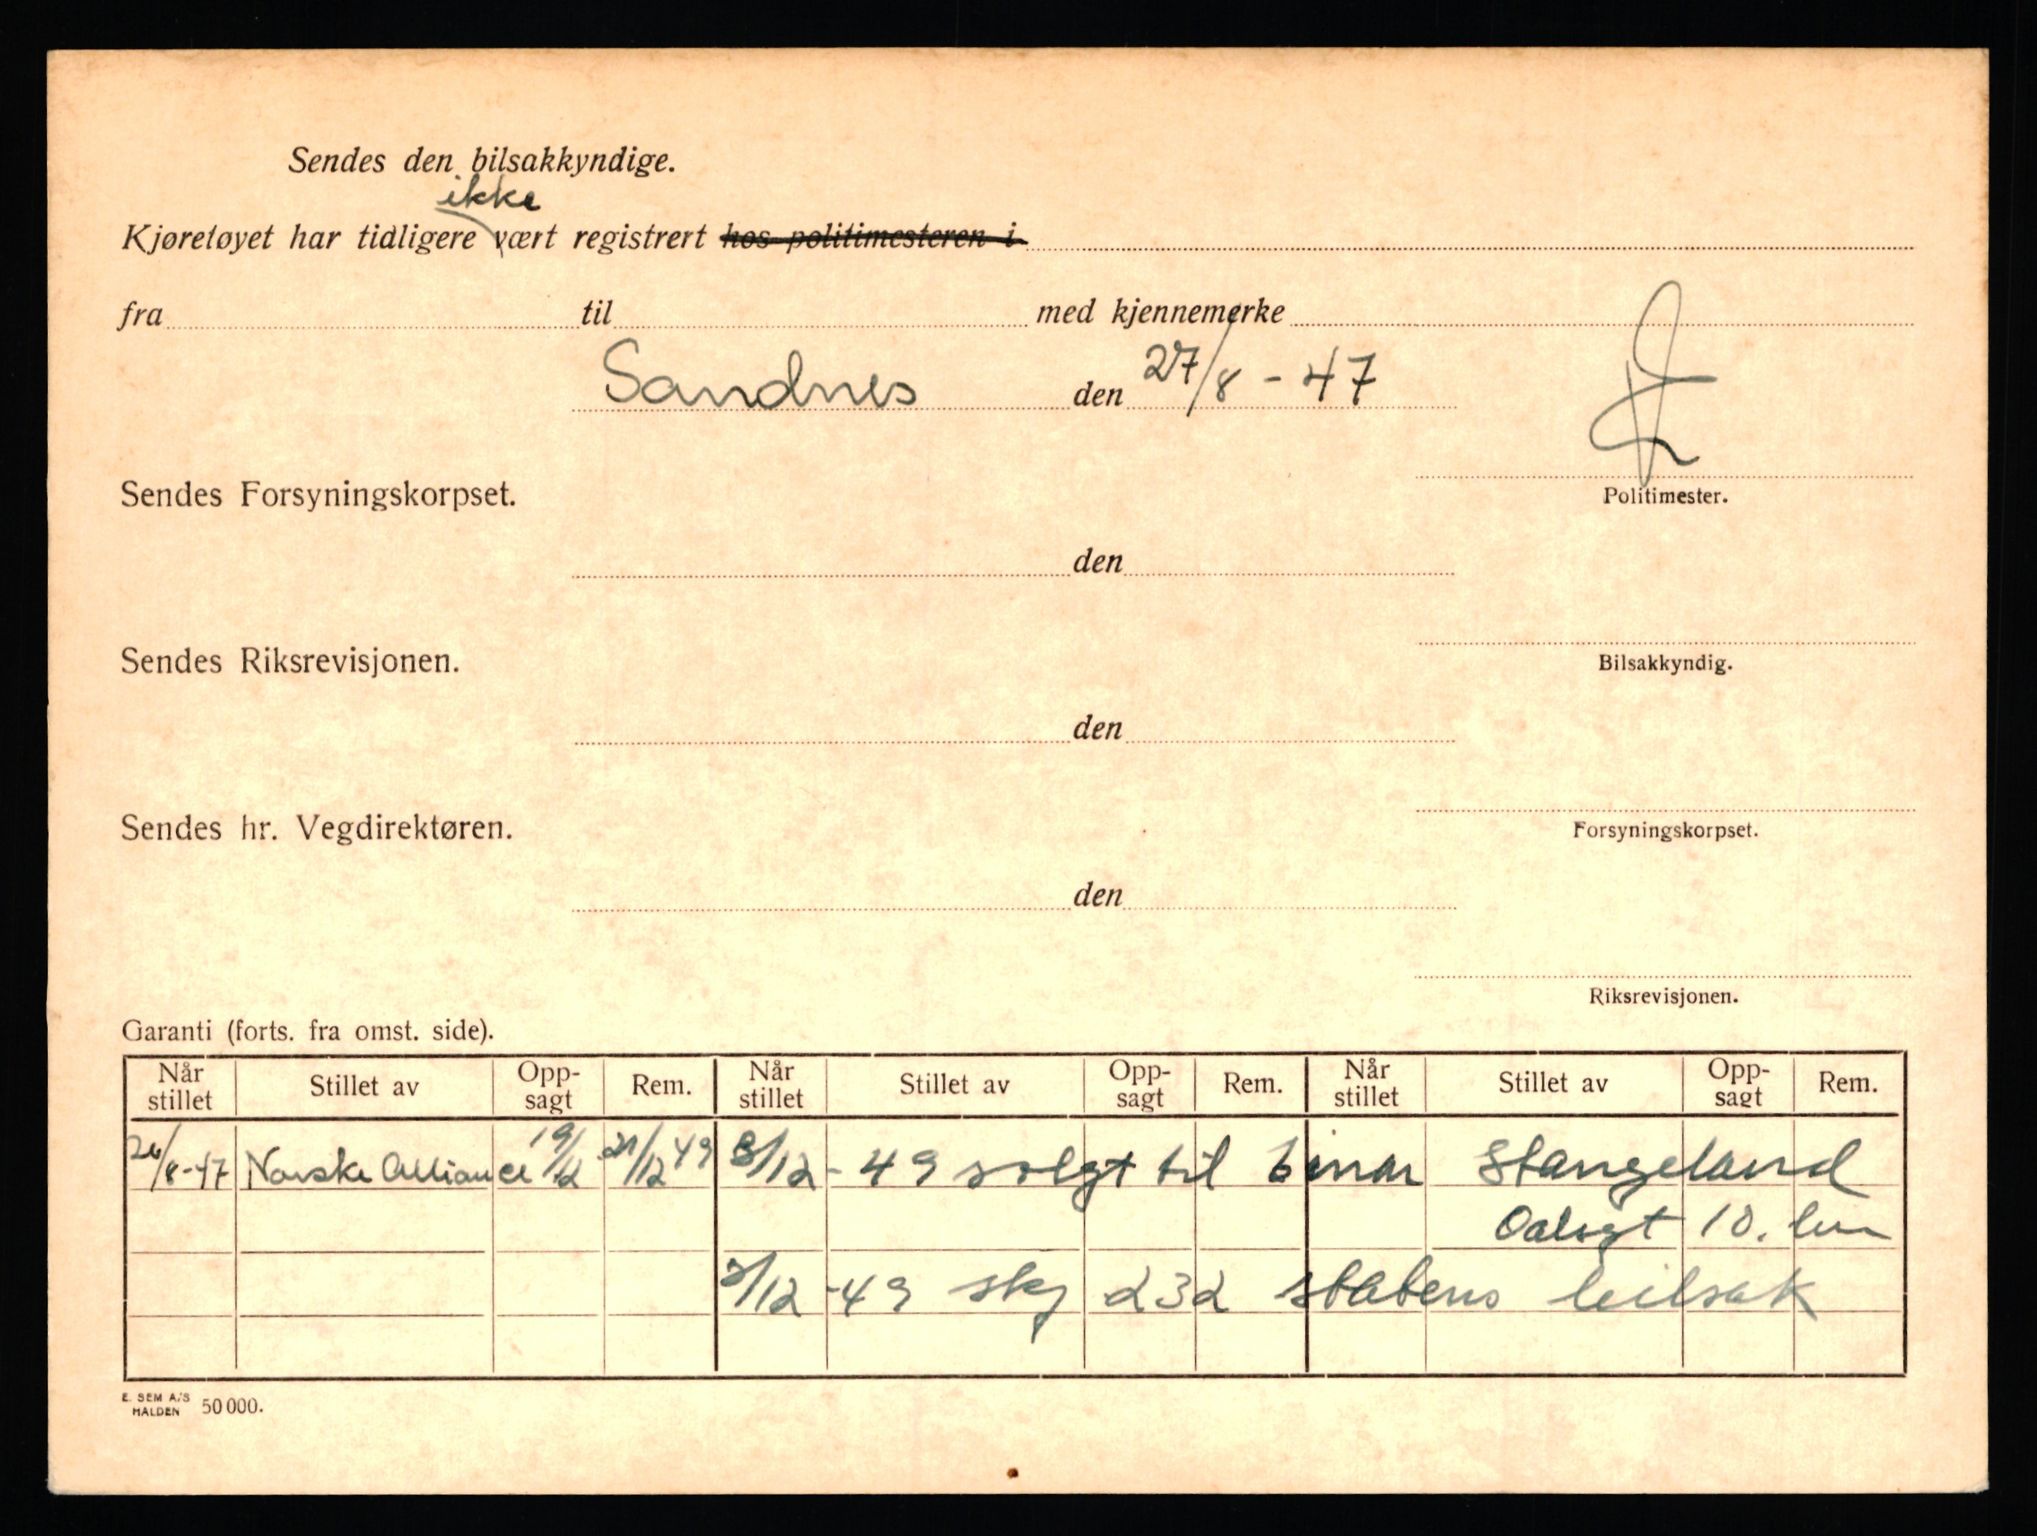 Sendes den bilsakkyndige.
ikke
Kjøretøyet har tidligere vært registrert hos politimesteren i
fra til med kjennemerke
Sandnes den 27/8 - 47
Sendes Forsyningskorpset. Politimester.
den
Sendes Riksrevisjonen. Bilsakkyndig.
den
Sendes hr. Vegdirektøren. Forsyningskorpset.
den
Riksrevisjonen.
Garanti (forts. fra omst. side).
Når stillet Stillet av Opp-sagt Rem. Når stillet Stillet av Opp-sagt Rem. Når stillet Stillet av Opp-sagt Rem.
26/8-47 Norske Alliance 19/12 21/12 49 8/12 - 49 solgt til Einar Stangeland
10.
/12 - 49 skj 232 statens bilsak
E. SEM A/S
HALDEN 50 000.